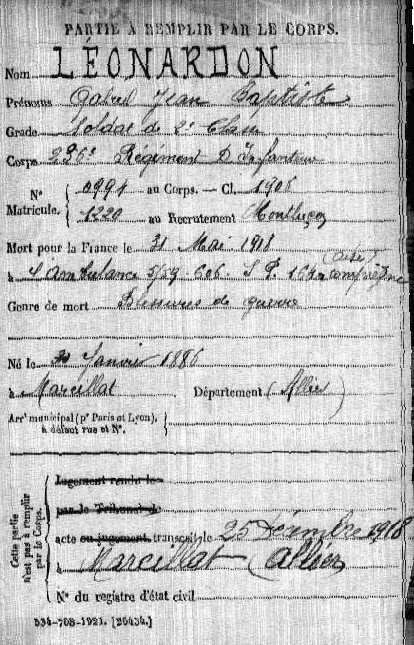 PARTIE À REMPLIR PAR LE CORPS.
Nom LÉONARDON
Prénoms Gabriel Jean Baptiste
Grade Soldat de 2e Classe
Corps 236e Régiment D'Infanterie
N° Matricule. { 0991 au Corps. — Cl. 1906
1220 au Recrutement Montluçon
Mort pour la France le 31 Mai 1918
(Oise)
à L'ambulance 5/59 S.P. Compiègne
Genre de mort Blessures de guerre
Né le Janvier 1886
à Marcillat Département (Allier)
Arrt municipal (pr Paris et Lyon), à défaut rue et N°. {
Cette partie n'est pas à remplir par le Corps.
Jugement rendu le
par le Tribunal de
acte ou jugement transcrit le 25 Décembre 1918
à Marcillat (Allier)
N° du registre d'état civil
534-708-1921. [26434.]